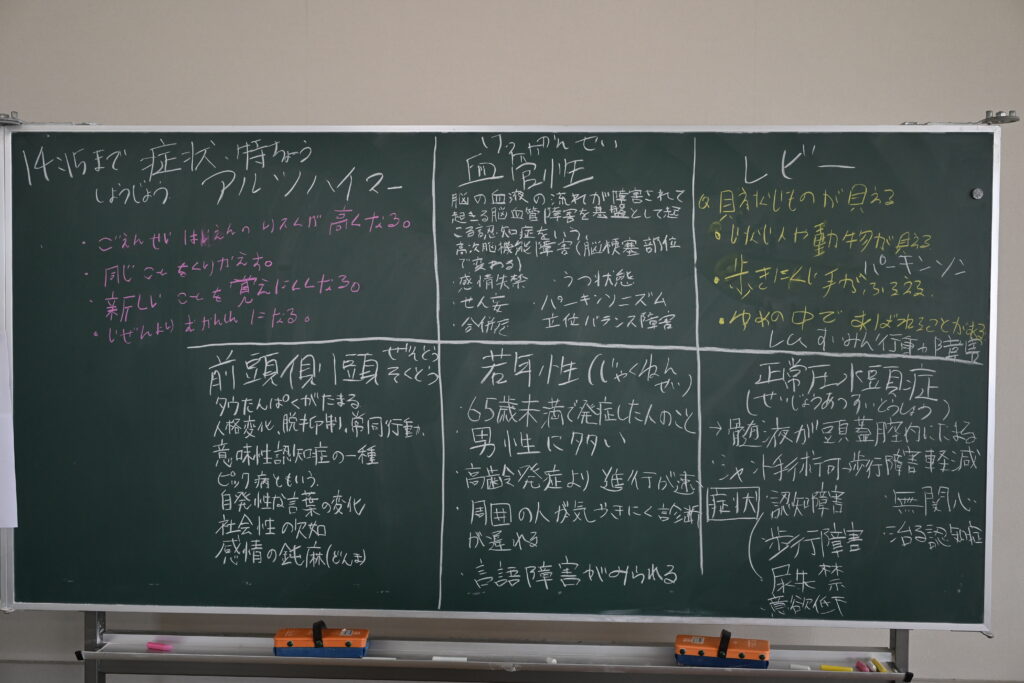 14:15まで 症状・特ちょう
しょうじょう アルツハイマー
・ごえんせいはいえんのリスクが高くなる。
・同じことをくりかえす。
・新しいことを覚えにくくなる。
・じぜんよりえがんこになる。
けっかんせい
血管性
脳の血液の流れが障害されて
起きる脳血管障害を基盤として起
こる認知症をいう。
高次脳機能障害(脳梗塞部位
で変わる)
・感情失禁 ・うつ状態
・せん妄 パーキンソニズム
・合併症 立位バランス障害
レビー
見えないものが見える
・けんじんや動物が見える
パーキンソン
・歩きにくい手がふるえる
・ゆめの中であばれることがある
レムすいみん行動障害
前頭側頭 ぜんとう
そくとう
タウたんぱくがたまる
人格変化、脱抑制、常同行動、
意味性認知症の一種
ピック病ともいう
自発性な言葉の変化
社会性の欠如
感情の鈍麻(どんま)
若年性(じゃくねん
せい)
・65歳未満で発症した人のこと
・男性に多い
・高齢発症より進行が速い
・周囲の人が気づきにく診断
が遅れる
・言語障害がみられる
正常圧水頭症
(せいじょうあつすいとうしょう)
→髄液が頭蓋腔内にたまる
・シャント手術可→歩行障害軽減
症状 認知障害 ・無関心
歩行障害 ・治る認知症
尿失禁
意欲低下